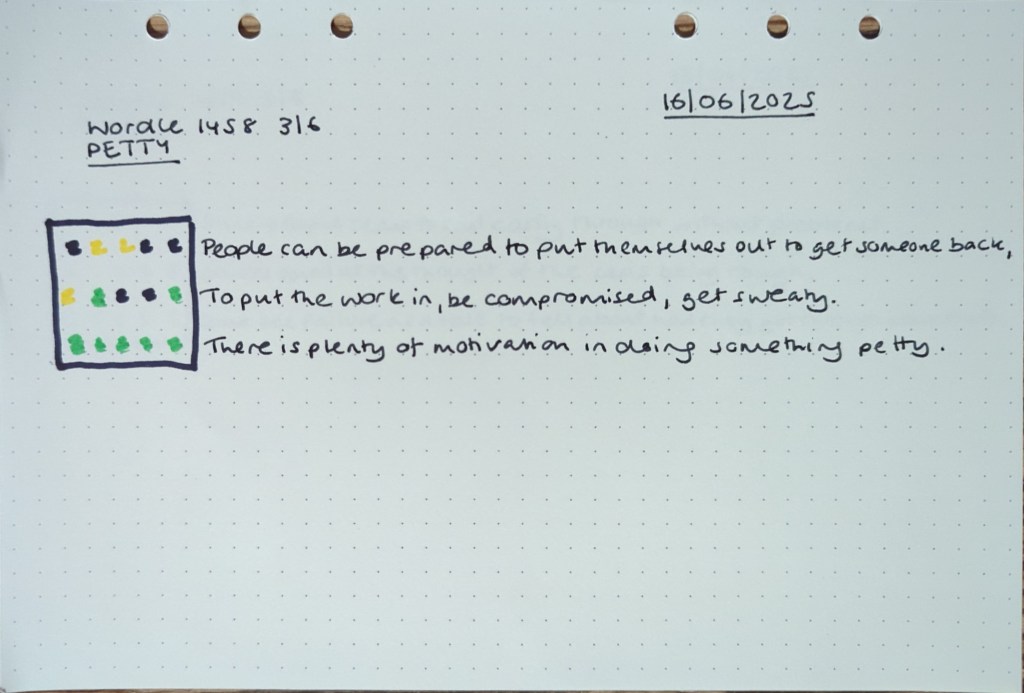 16/06/2025
Wordle 1458 3/6
PETTY
People can be prepared to put themselves out to get someone back,
To put the work in, be compromised, get sweaty.
There is plenty of motivation in doing something petty.